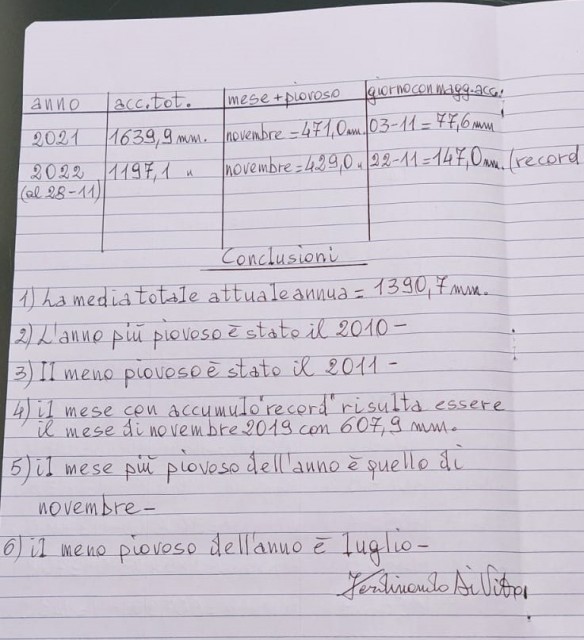 anno acc.tot. mese+piovoso giorno con magg.acc.
2021 1639,9 mm. novembre=471,0mm. 03-11=77,6mm
2022 1197,1 " novembre=429,0" 22-11=147,0mm. (record
(al 28-11)
Conclusioni
1) La media totale attuale annua= 1390,7 mm.
2) L'anno più piovoso è stato il 2010-
3) Il meno piovoso è stato il 2011-
4) il mese con accumulo "record" risulta essere
il mese di novembre 2019 con 607,9 mm.
5) il mese più piovoso dell'anno è quello di
novembre-
6) il meno piovoso dell'anno è luglio-
Ferdinando Di